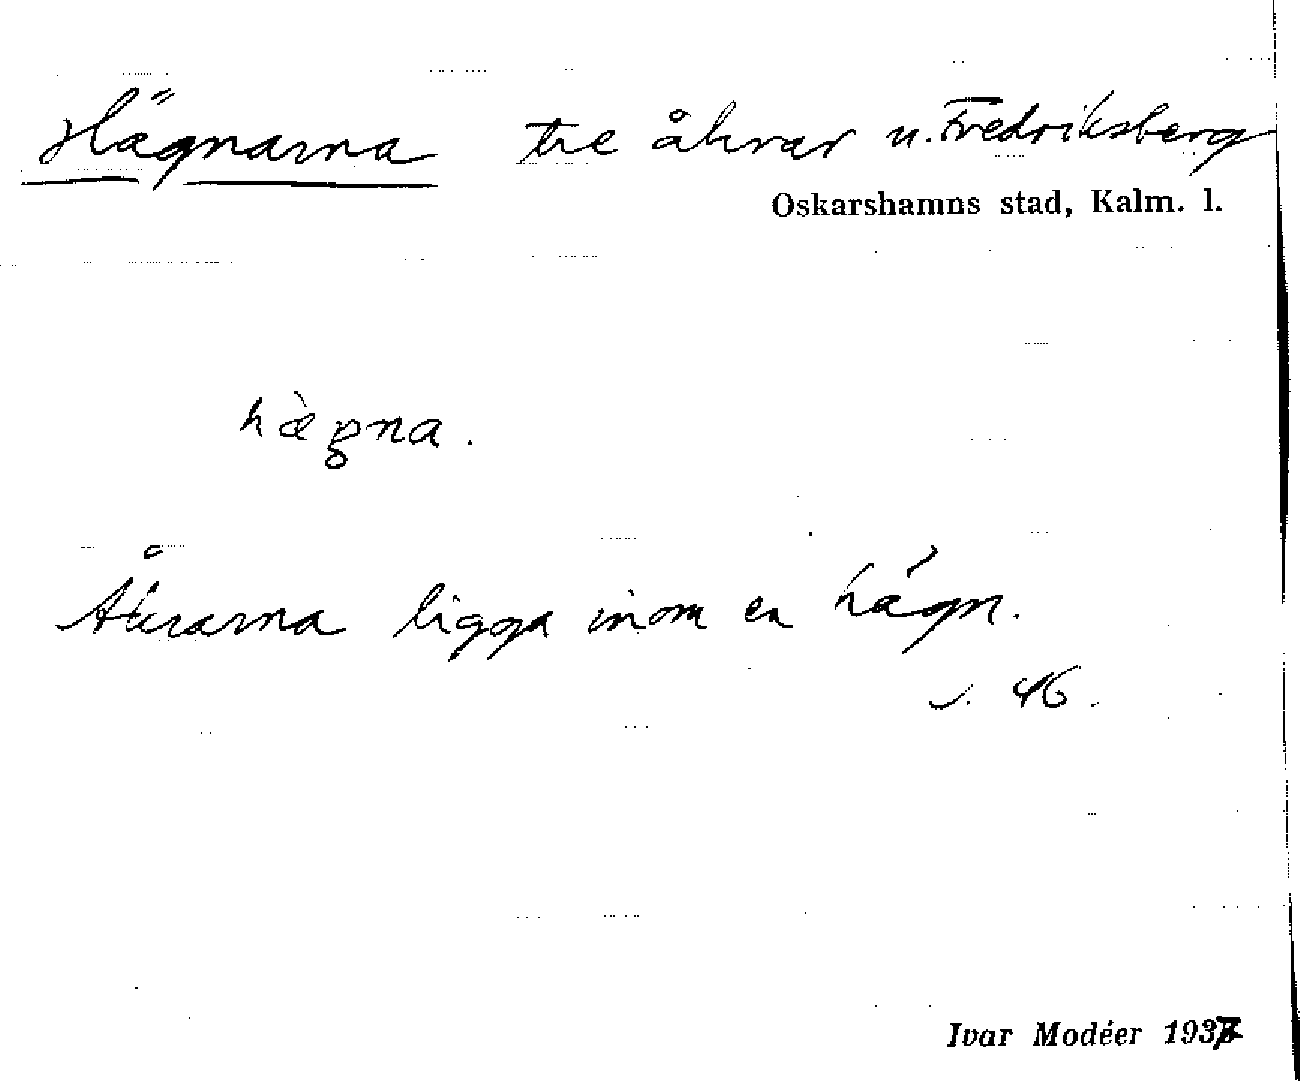 Hägnarna tre åkrar u. Fredriksberg
Oskarshamns stad, Kalm. l.
hæ̀gna.
Åkrarna ligga inom en hägn.
s. 46.
Ivar Modéer 1937